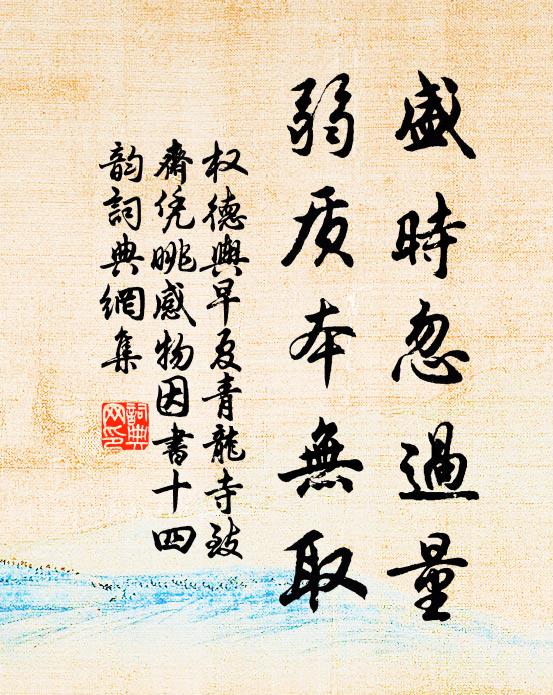 盛時忽過量
弱质本無取
权德舆早夏青龍寺致
齋凭眺感物因書十四
韵詞典網集
詞典
网印